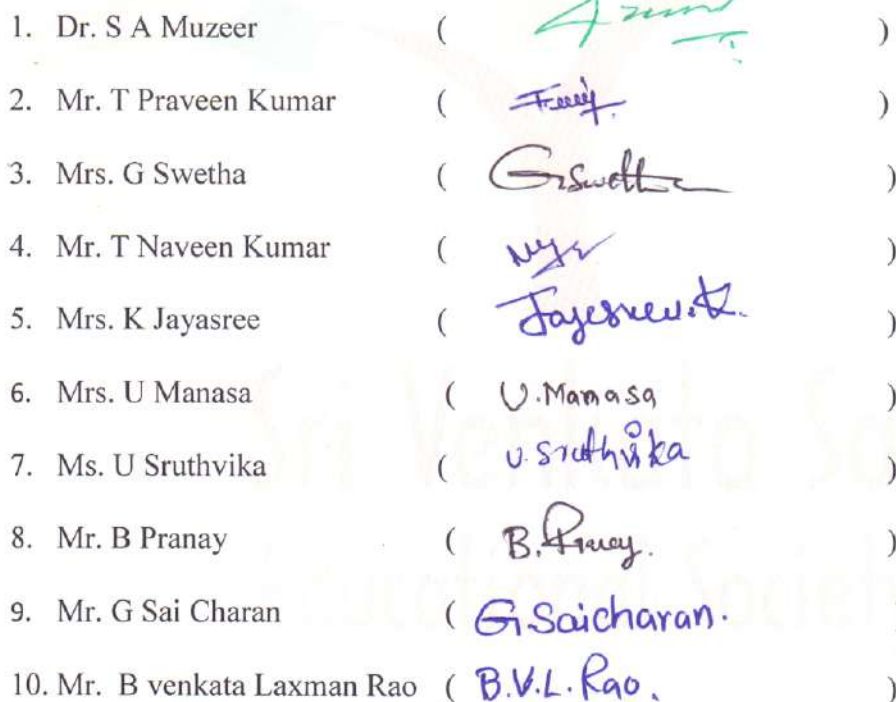 1. Dr. S A Muzeer ( )
2. Mr. T Praveen Kumar ( )
3. Mrs. G Swetha ( G Swetha )
4. Mr. T Naveen Kumar ( )
5. Mrs. K Jayasree ( Jayesree.K. )
6. Mrs. U Manasa ( U.Manasa )
7. Ms. U Sruthvika ( U.Sruthvika )
8. Mr. B Pranay ( B.Pranay. )
9. Mr. G Sai Charan ( G.Saicharan. )
10. Mr. B venkata Laxman Rao ( B.V.L.Rao. )
Sri Venkata So
Educational Societ